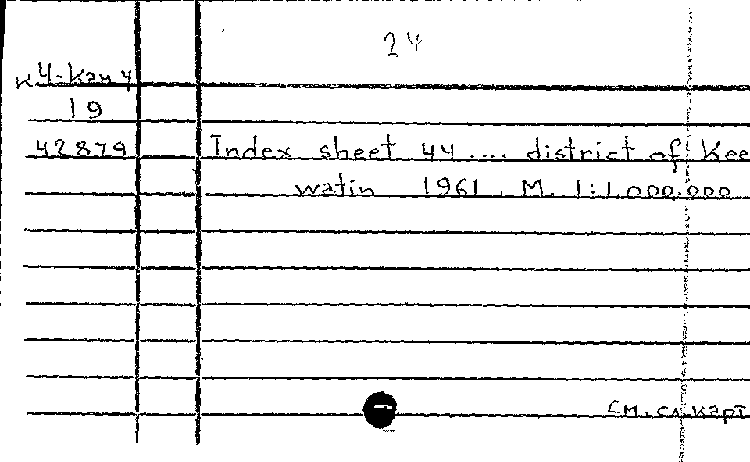 24
к4-Кан4
19
42879 Index sheet 44.... district of Kee
watin 1961. M. 1:1.000.000
см. сл. карт